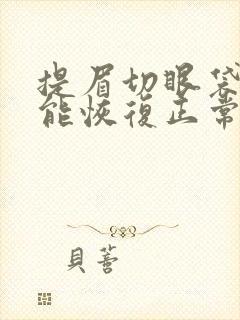 提眉切眼袋
能恢復正常
貝蕾